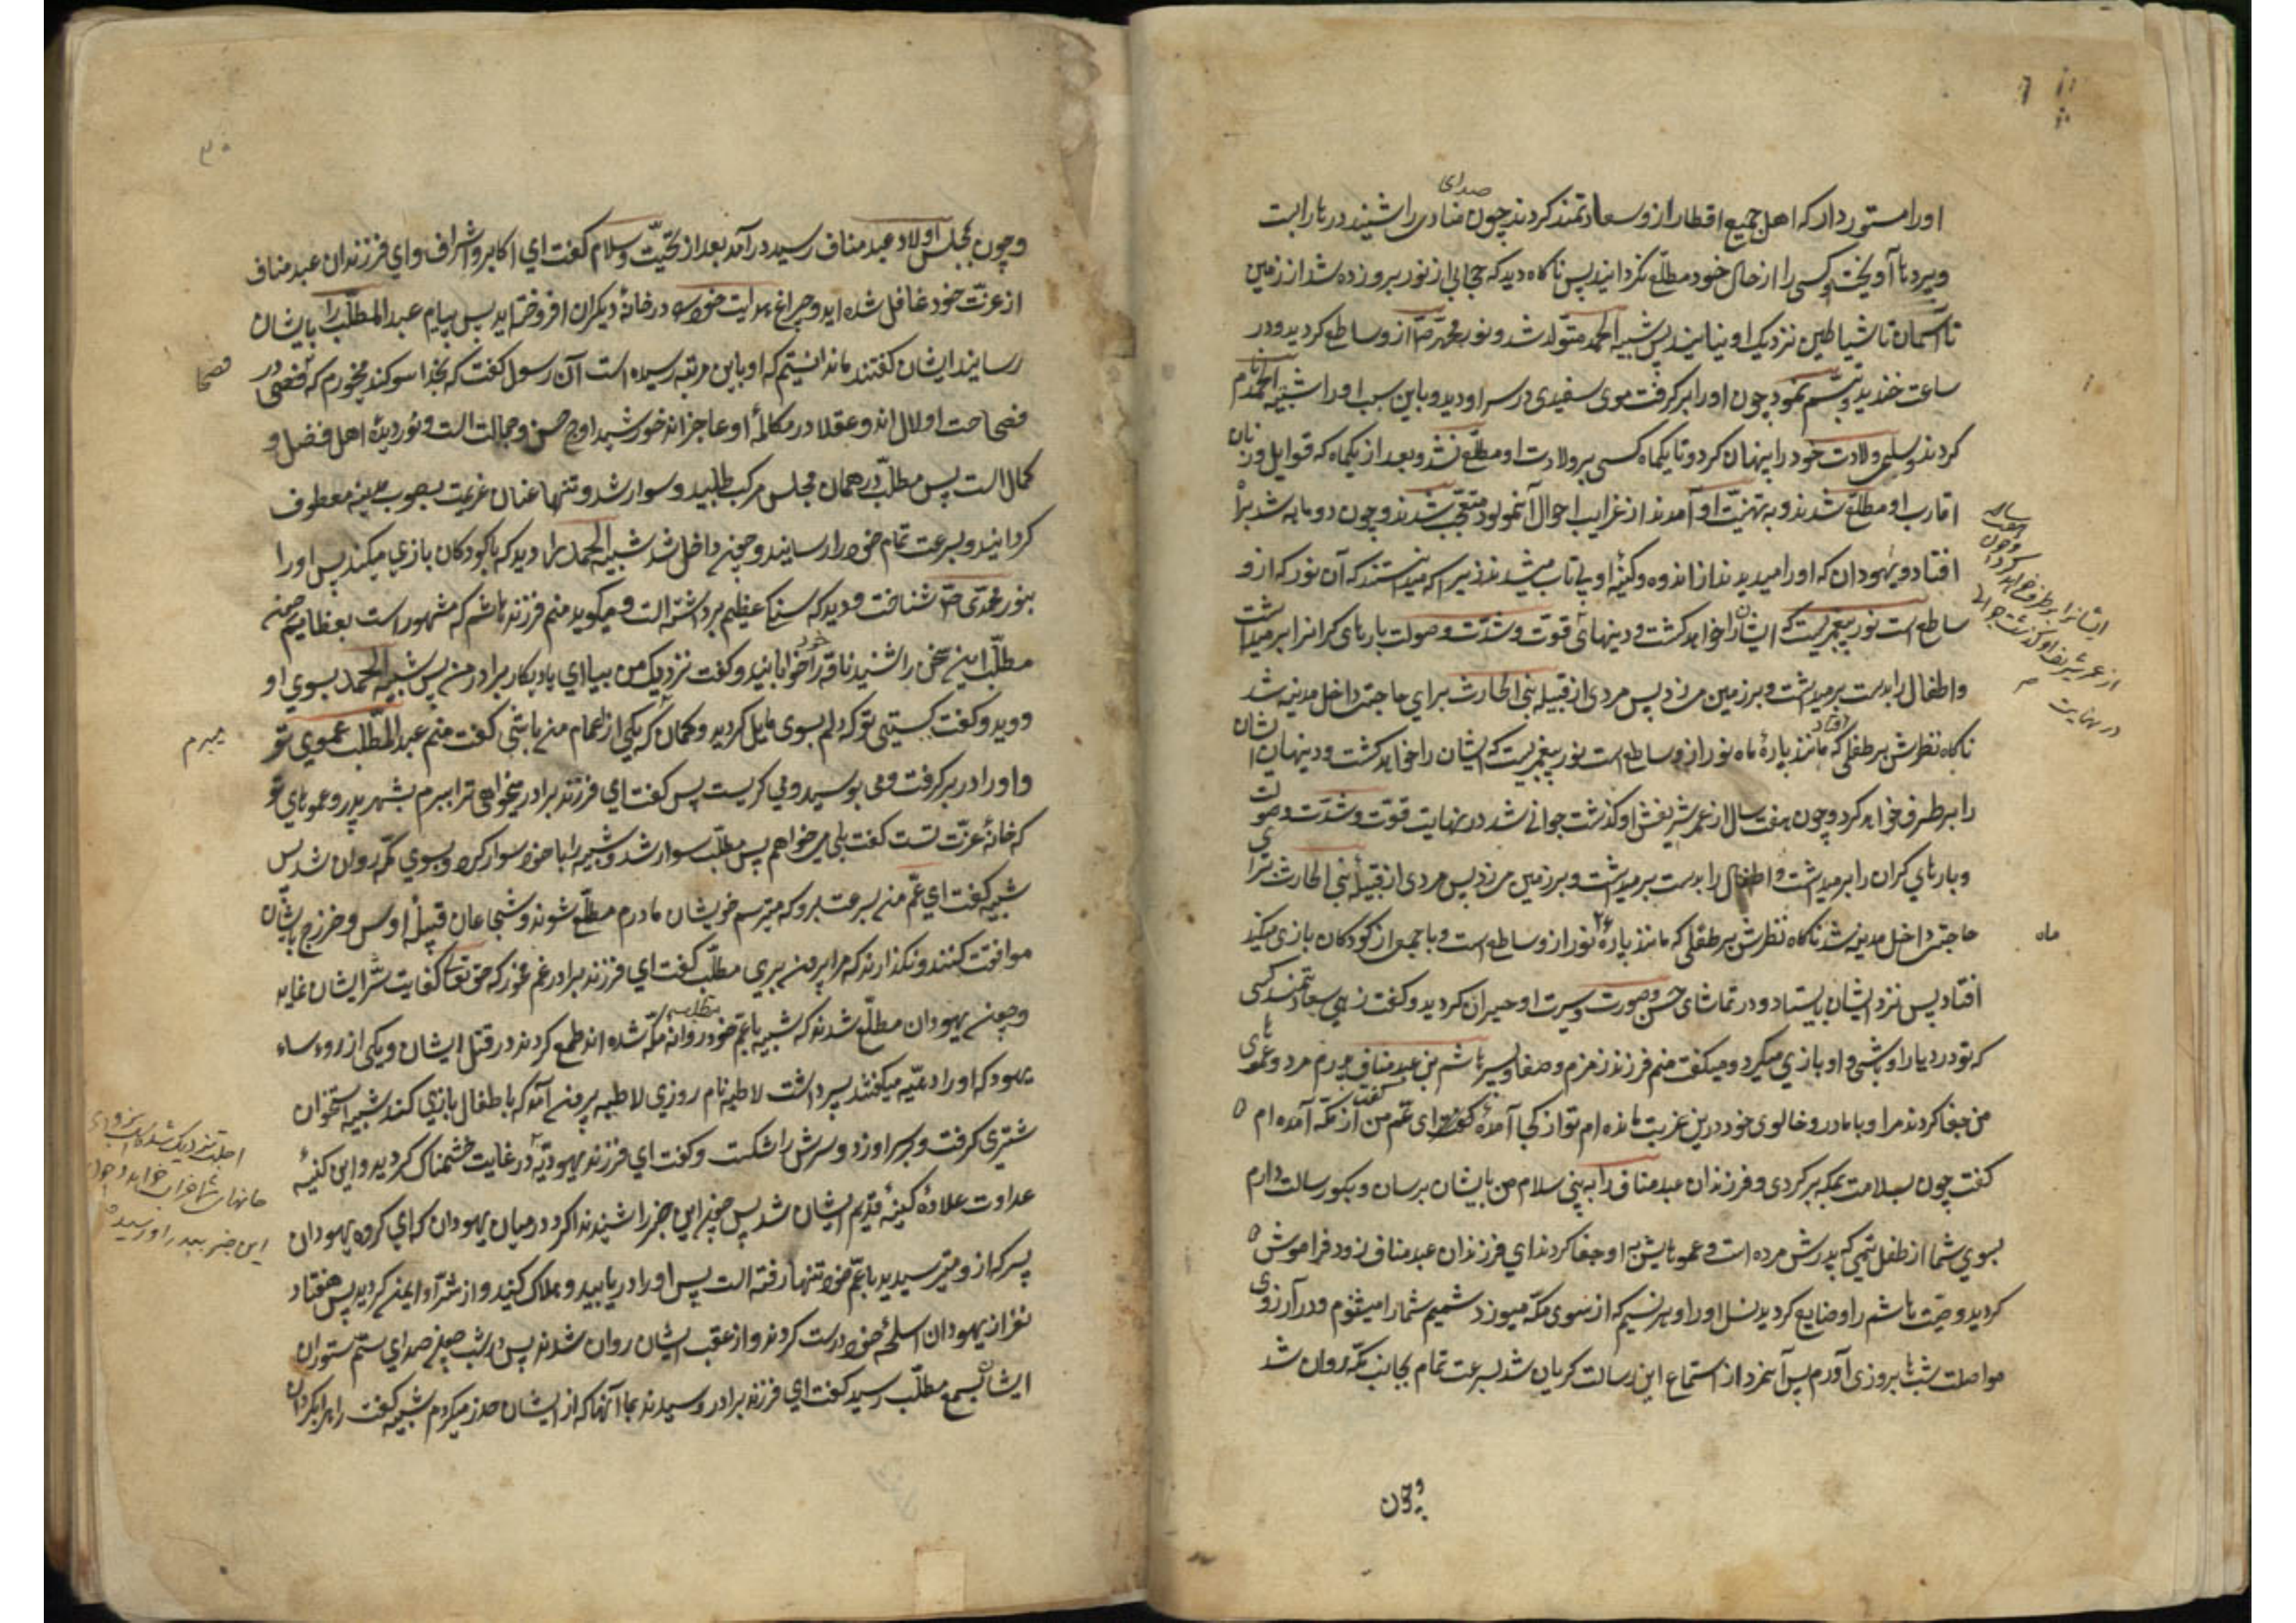 او را مستور دار که اهل جمیع اقطار از و سعادتمند کردند چون صدای منادی را شنید در ها را بست
و پرده ها آویخت و کسی را از حال خود مطلّع نکردانید پس ناکاه دید که حجابی از نور برو زده شد از زمین
تا آسمان تا شیاطین نزدیک او نیایند پس شیبه الحمد متولّد شد و نور محمّد ص از و ساطع کردید و در
ساعت خندید و تبسّم نمود چون او را بر کرفت موی سفیدی در سر او دید و باین سبب او را شیبه الحمد نام
کردند و سلمی ولادت خود را پنهان کرد و تا یکماه کسی بر ولادت او مطلّع نشد و بعد از یکماه که قوابل و زنان
اقارب او مطلّع شدند و به تهنیت او آمدند از غرایب احوال آنمولود متعجّب شدند و چون دو ماهه شد براه
افتاد و یهودان که او را میدیدند از اندوه و کینهٔ او بی تاب میشدند زیرا که میدانستند که آن نور که از و
ساطع است نور پیغمبریست که ایشان را خواهد کشت و دینهای قوّت و شدّت و صولت بارهای کرانرا بر میداشت
و اطفال را بدست بر میداشت و بر زمین میزد پس مردی از قبیله بنی الحارث برای حاجتی داخل مدینه شد
ناکاه نظرش بر طفلی افتاد که مانند پارهٔ ماه نور از و ساطع است نور پیغمبریست که ایشان را خواهد کشت و دینهای ایشان
را بر طرف خواهد کرد و چون هفت سال از عمر شریفش او کذشت جوانی شد در نهایت قوّت و شدّت و صولت
و بارهای کران را بر میداشت و اطفال را بدست بر میداشت و بر زمین میزد پس مردی از قبیلهٔ بنی الحارث برای
حاجتی داخل مدینه شد ناکاه نظرش بر طفلی که مانند پارهٔ نور از و ساطع است و با جمعی از کودکان بازی میکند
ماه
افتاد پس نزد ایشان بایستاد و در تماشای حسن و صورت و سیرت او حیران کردید و کفت زهی سعادتمند کسی
که تو در دیار او باشی و او بازی میکرد و میکفت منم فرزند زمزم و صفا و پسر هاشم بن عبد مناف پدرم مرد و عموهای
من جفا کردند مرا و با مادر و خالوی خود درین غربت مانده ام تو از کجا آمدهٔ ای عمّ کفت من از مکّه آمده ام
کفت چون بسلامت بمکه بر کردی و فرزندان عبد مناف را به بینی سلام من بایشان برسان و بکو رسالت دارم
بسوی شما از طفل یتیمی که پدرش مرده است و عموهایش به او جفا کردند ای فرزندان عبد مناف زود فراموش
کردید وصیّت هاشم را و ضایع کردید نسل او را و هر نسیم که از سوی مکّه میوزد شمیم شما را میشنوم و در آرزوی
مواصلت شبها بروزی آورم پس آنمرد از استماع این رسالت کریان شد بسرعت تمام بجانب مکّه روان شد
و چون
و چون بمجلس اولاد عبد مناف رسید در آمد بعد از تحیّت و سلام کفت ای اکابر و اشراف و ای فرزندان عبد مناف
از عزّت خود غافل شده اید و چراغ هدایت خود را در خانهٔ دیکران افروخته اید پس پیام عبد المطلّب را بایشان
رسانید ایشان کفتند ما ندانستیم که او باین مرتبه رسیده است آن رسول کفت که بخدا سوکند میخورم که فصحا در
فصحا
فصاحت او لال اند و عقلا در مکالمهٔ او عاجز اند خورشید اوج حسن و جمالست و نور دیدهٔ اهل فضل و
کمالست پس مطلّب در همان مجلس مرکب طلبید و سوار شد و تنها عنان عزیمت بصوب مدینه معطوف
کردانید و بسرعت تمام خود را رسانید و چون داخل شد شیبه الحمد را دید که با کودکان بازی میکند پس او را
بنور محمّدی ص شناخت و دید که سنک عظیم برداشته است و میکوید منم فرزند هاشم که مشهور است بعظایم چون
مطلّب این سخن را شنید ناقه خود را خوابانید و کفت نزدیک من بیا ای یادکار برادر من پس شیبه الحمد بسوی او
دوید و کفت کیستی تو که دلم بسوی مایل کردید و کمان که یکی از اعمام من باشی کفت منم عبد المطلّب عموی تو
میبرم
و او را در بر کرفت و می بوسید و می کریست پس کفت ای فرزند برادر میخواهی ترا ببرم بشهر پدر و عموهای تو
که خانهٔ عزّت تست کفت بلی میخواهم پس مطلّب سوار شد و شیبه را با خود سوار کرد و بسوی مکّه روان شد پس
شیبه کفت ای عمّ من بسرعت برو که میترسم خویشان مادرم مطلّع شوند و شجاعان قبیلهٔ اوس و خزرج بایشان
موافقت کنند و نکذارند که مرا بیرون بری مطلّب کفت ای فرزند برادر غم مخور که حق تعالی کفایت شرّ ایشان نماید
و چون یهودان مطلّع شدند که شیبه با عمّ خود مطلّب روانه مکّه شده اند طمع کردند در قتل ایشان و یکی از روساء
یهود که او را دعیّه میکفتند پسر داشت لاطیه نام روزی لاطیه بیرون آمد که با اطفال بازی کند شیبه استخوان
شتری کرفت و بر سر او زد و سرش را شکست و کفت ای فرزند یهودیّه در غایت خشمناک کردید و این کینهٔ
اجلت نزدیک شد
خانهای شما خراب خواهد
این خبر بپدر او رسید
عداوت علاوهٔ کینهٔ قدیم ایشان شد پس چون این خبر را شنیدند ندا کرد در میان یهودان که ای کروه یهودان
پسر که از و میترسیدید با عمّ خود تنها رفته است پس او را در یابید و هلاک کنید و از شرّ او ایمن کردید پس هفتاد
نفر از یهودان اسلحهٔ خود درست کردند و از عقب ایشان روان شدند پس در شب چون صدای سمّ ستوران
ایشان بسمع مطلّب رسید کفت ای فرزند برادر رسیدند بما آنها که از ایشان حذر میکردم شیبه کفت راه را بکردان